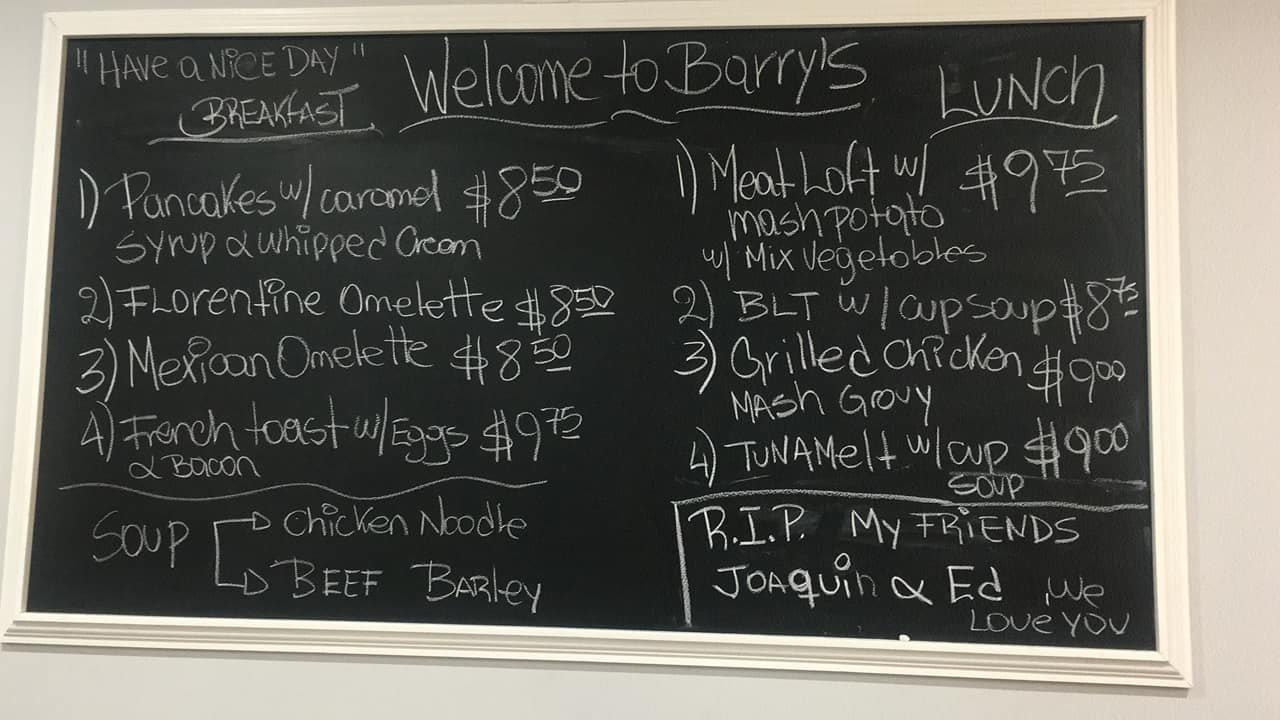 "HAVE a NiCE DAY"
Welcome to Barry's
BREAKFAST
1) Pancakes w/ caramel $8.50
Syrup & Whipped Cream
2) Florentine Omelette $8.50
3) Mexican Omelette $8.50
4) French toast w/ Eggs $9.75
& Bacon
Soup
Chicken Noodle
BEEF BARLey
LUNCh
1) Meat Loft w/ $9.75
mash potato
w/ Mix Vegetables
2) BLT w/ cup soup $8.75
3) Grilled Chicken $9.00
MASh Gravy
4) TUNAMelt w/ cup $9.00
SOUP
R.I.P. My FRiENDS
JOAquin & Ed We
LOVE YOU